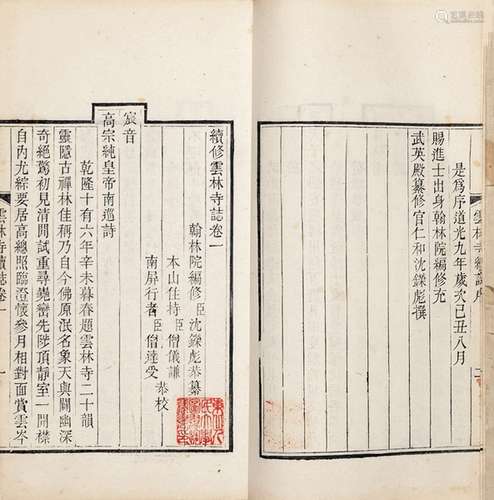 是爲序道光九年歲次己丑八月
賜進士出身翰林院編修充
武英殿纂修官仁和沈鑅彪撰
雲林寺續誌序
續修雲林寺誌卷一
翰林院編修臣沈鑅彪恭纂
本山住持臣僧儀謙
南屏行者臣僧達受
恭校
宸音
高宗純皇帝南巡詩
乾隆十有六年辛未暮春題雲林寺二十韻
靈隱古禪林佳稱乃自今佛原泯名象天與闢幽深
奇絕驚初見清閒試重尋巉巒先陟頂靜室一開襟
自內尤綜要居高總照臨澄懷參月相對面賞雲岑
雲林寺續誌卷一
一